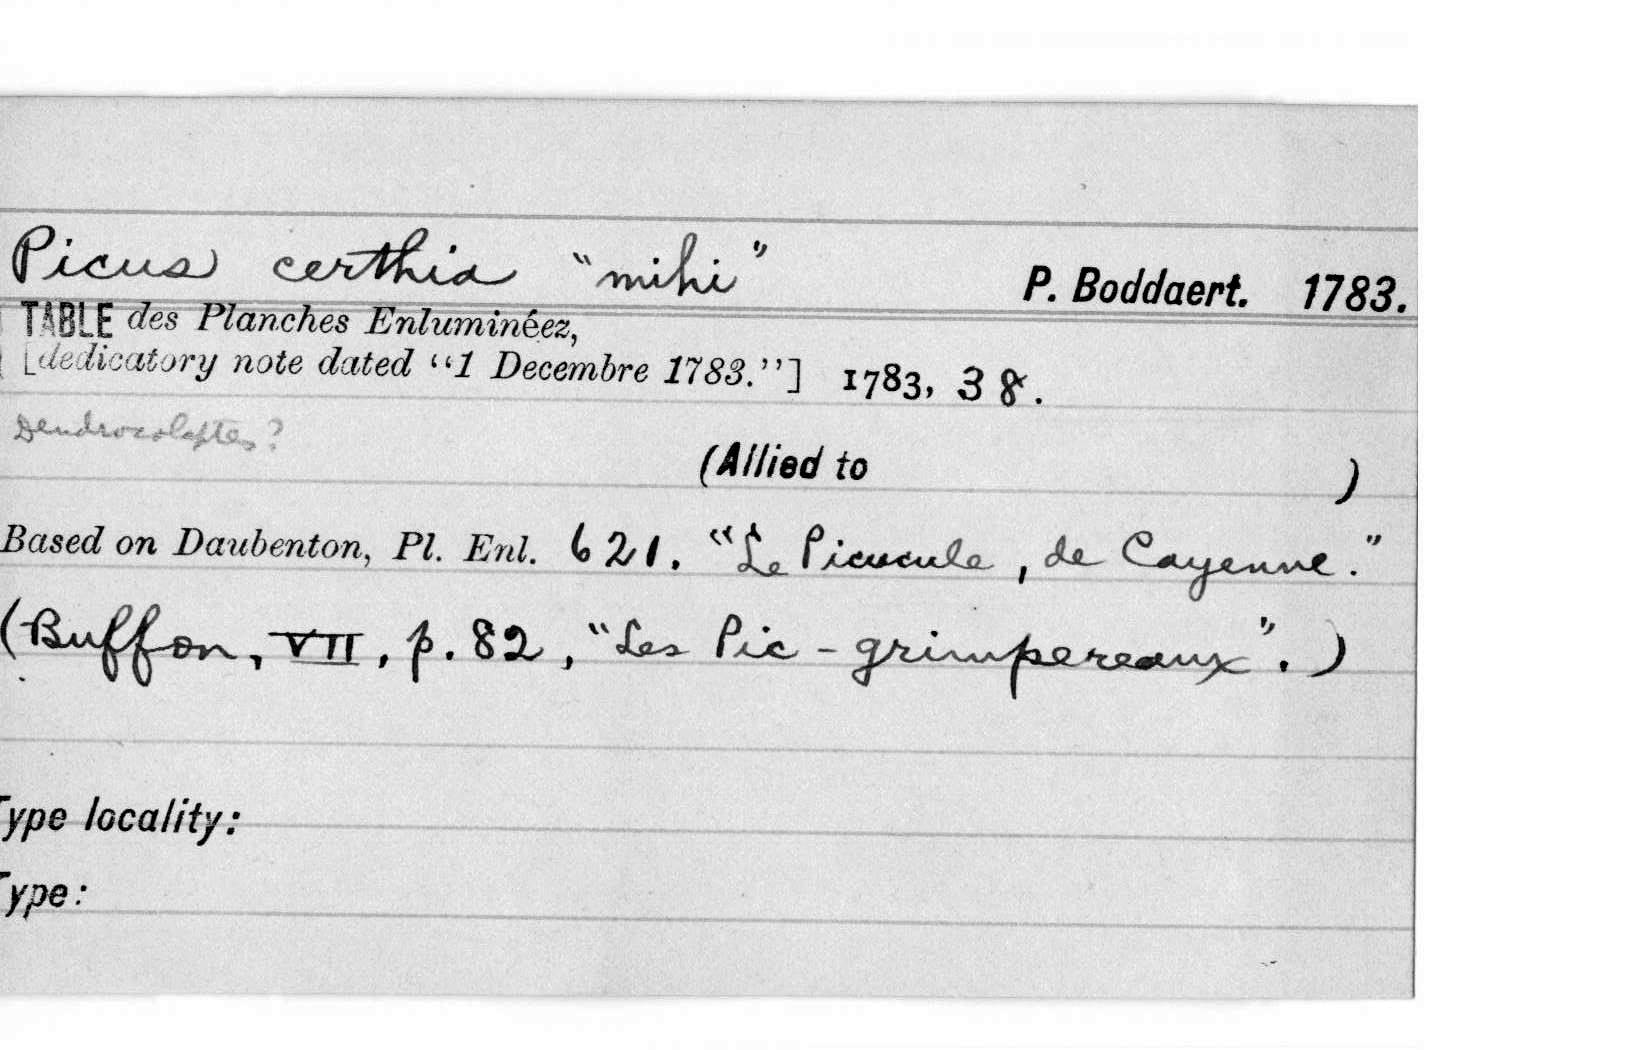 Picus certhia "mihi" P. Boddaert. 1783.
TABLE des Planches Enluminéez,
[dedicatory note dated "1 Decembre 1783."] 1783, 38.
Dendrocolaptes?
(Allied to )
Based on Daubenton, Pl. Enl. 621. "Le Picucule, de Cayenne."
(Buffon, VII, p. 82, "Les Pic-grimpereaux".)
Type locality:
Type: